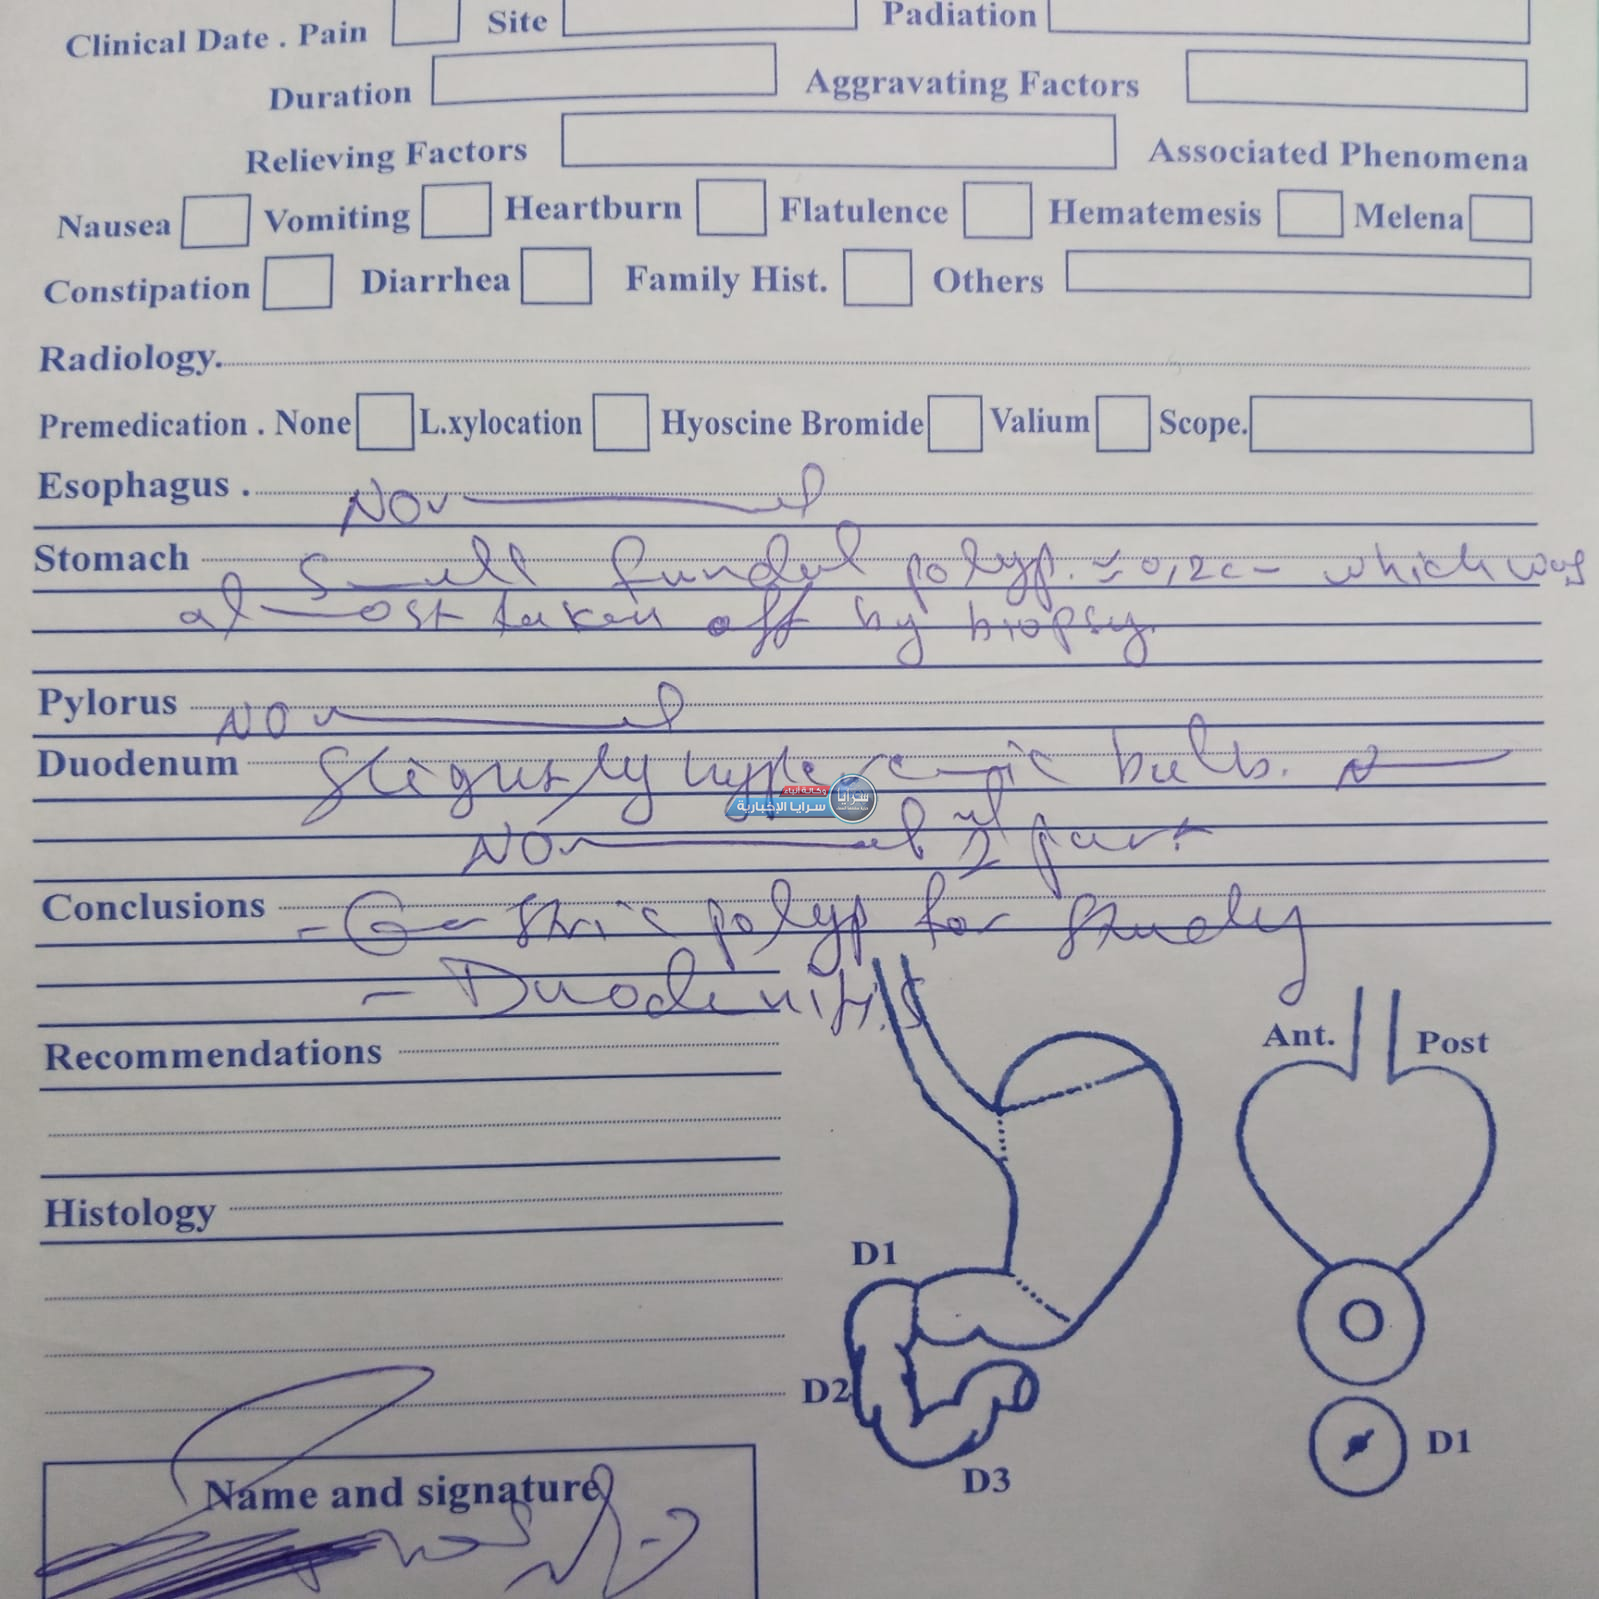 Clinical Date . Pain Site Padiation
Duration Aggravating Factors
Relieving Factors Associated Phenomena
Nausea Vomiting Heartburn Flatulence Hematemesis Melena
Constipation Diarrhea Family Hist. Others
Radiology.
Premedication . None L.xylocation Hyoscine Bromide Valium Scope.
Esophagus . Normal
Stomach Small fundal polyp. ≈ 0,2c which was
almost taken off by biopsy.
Pylorus Normal
Duodenum Slightly hyperemic bulb.
وكالة أنباء
سرايا الإخبارية
سرايا
Normal 2nd part
Conclusions - Gastric polyp for study
- Duodenitis
Recommendations
Ant. Post
Histology
D1
D2
D1
D3
Name and signature